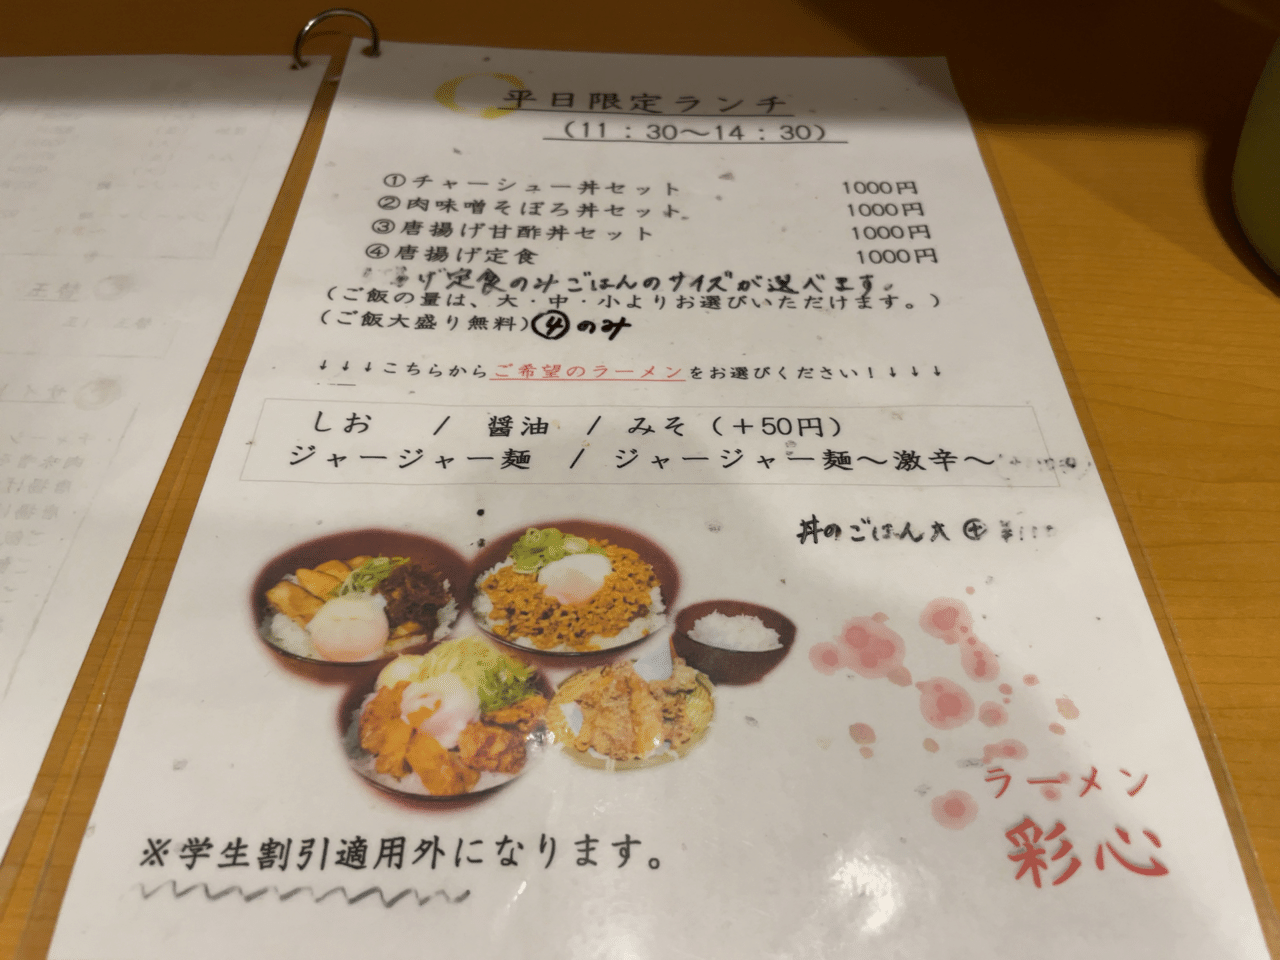 平日限定ランチ
（11：30～14：30）
①チャーシュー丼セット 1000円
②肉味噌そぼろ丼セット 1000円
③唐揚げ甘酢丼セット 1000円
④唐揚げ定食 1000円
げ定食のみごはんのサイズが選べます。
（ご飯の量は、大・中・小よりお選びいただけます。）
（ご飯大盛り無料）④のみ
↓↓↓こちらからご希望のラーメンをお選びください！↓↓↓
しお / 醤油 / みそ（＋50円）
ジャージャー麺 / ジャージャー麺～激辛～
丼のごはん大 ⊕
ラーメン
彩心
※学生割引適用外になります。